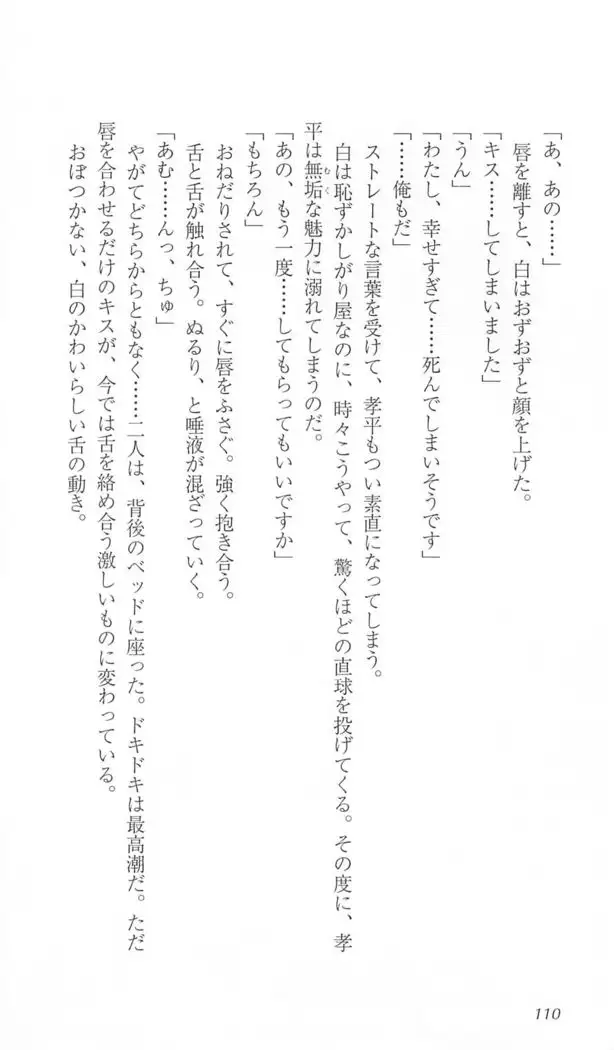 「あ、あの……」
唇を離すと、白はおずおずと顔を上げた。
「キス……してしまいました」
「うん」
「わたし、幸せすぎて……死んでしまいそうです」
「……俺もだ」
ストレートな言葉を受けて、孝平もつい素直になってしまう。
白は恥ずかしがり屋なのに、時々こうやって、驚くほどの直球を投げてくる。その度に、孝
平は無垢な魅力に溺れてしまうのだ。
「あの、もう一度……してもらってもいいですか」
「もちろん」
おねだりされて、すぐに唇をふさぐ。強く抱き合う。
舌と舌が触れ合う。ぬるり、と唾液が混ざっていく。
「あむ……んっ、ちゅ」
やがてどちらからともなく……二人は、背後のベッドに座った。ドキドキは最高潮だ。ただ
唇を合わせるだけのキスが、今では舌を絡め合う激しいものに変わっている。
おぼつかない、白のかわいらしい舌の動き。
110